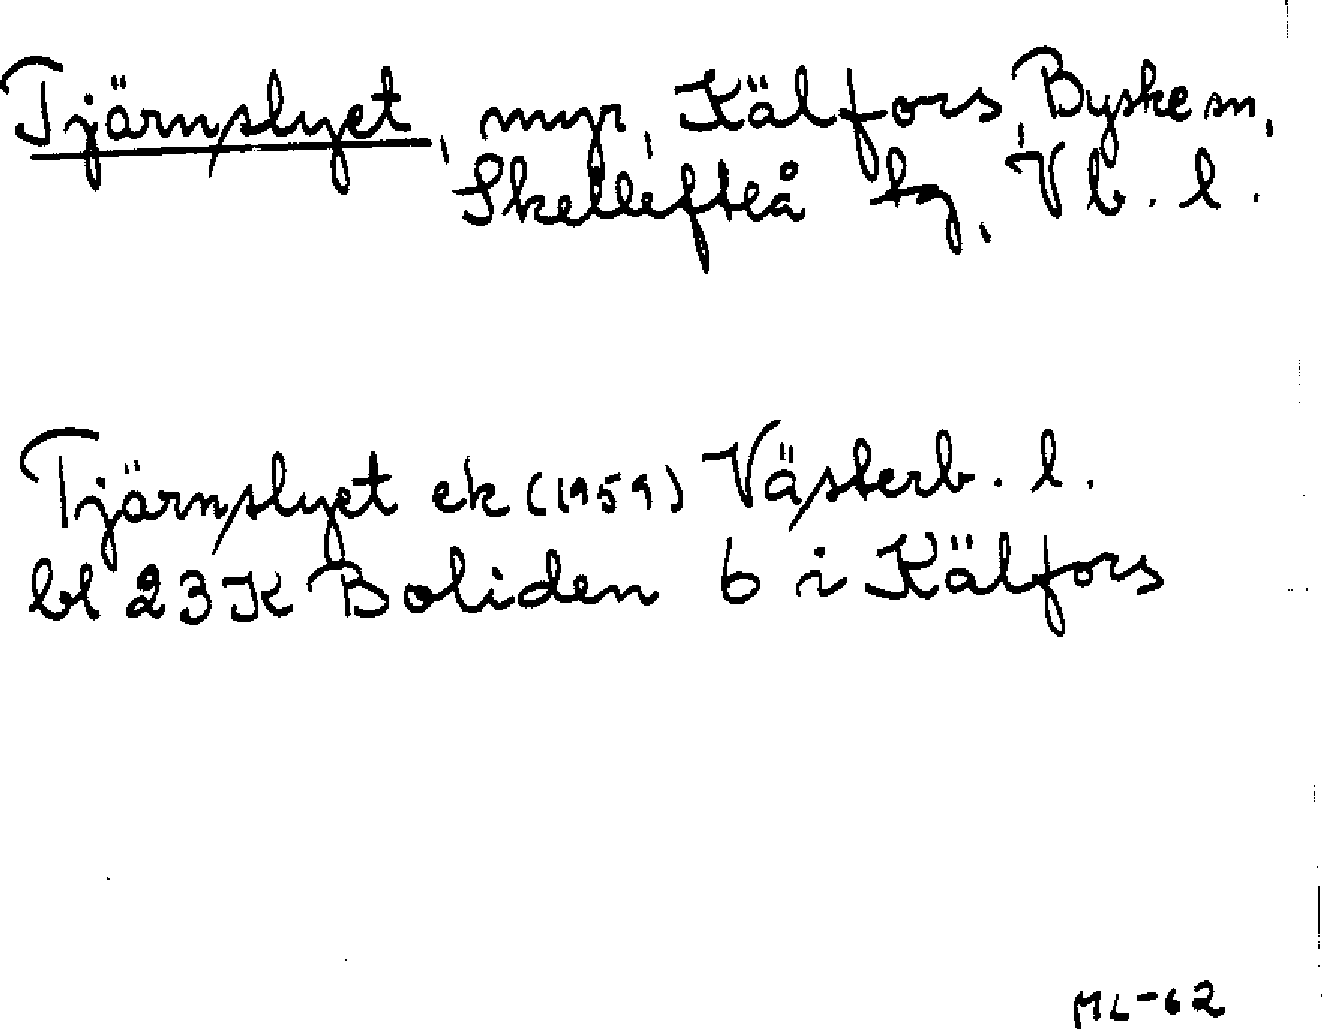 Tjärnslyet, myr, Källfors, Byske sn,
Skellefteå tg, Vb. l.
Tjärnslyet ek (1959) Västerb. l.
bl 23K Boliden 6 i Källfors
ML-62